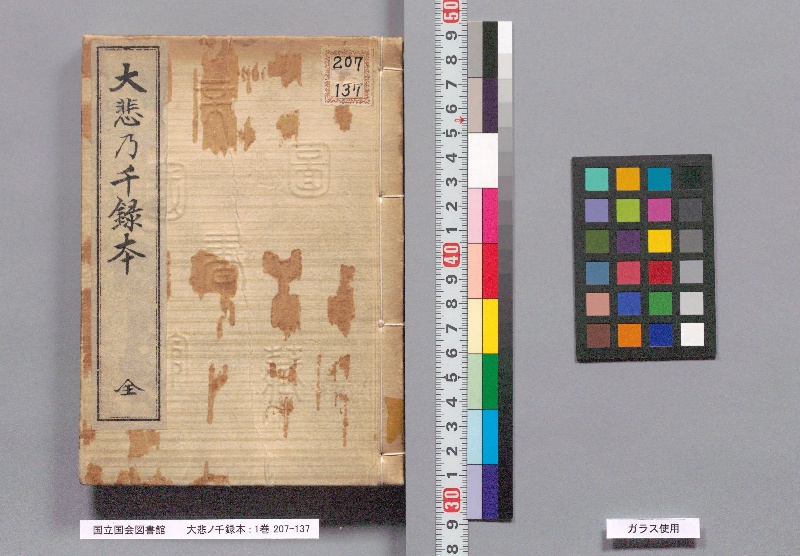 大悲乃千録本
全
207
137
国立国会図書館 大悲ノ千録本：1巻 207-137
ガラス使用
50
9
8
7
6
5
4
3
2
1
40
9
8
7
6
5
4
3
2
1
30
9
8